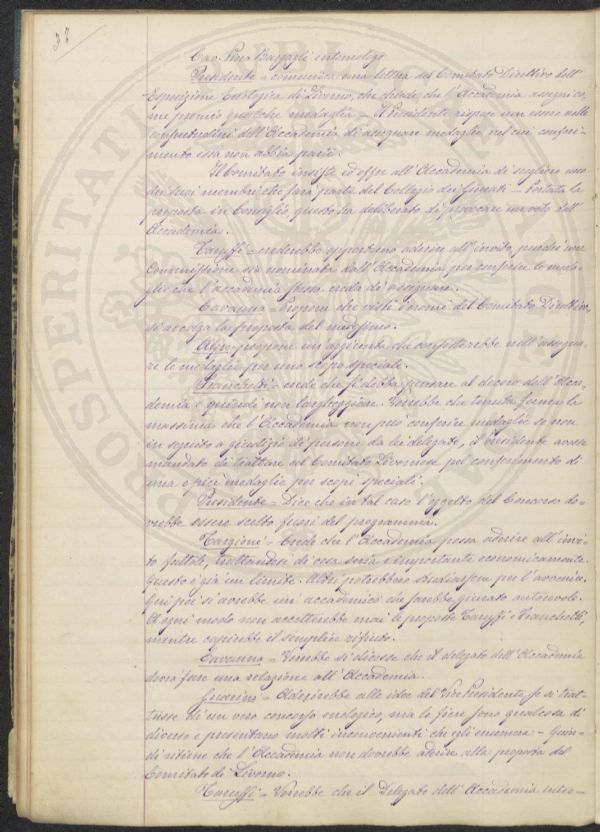 32
Cav. Piero Bargagli entomologo
Presidente = comunica una lettera del Comitato Direttivo dell'
Esposizione Enologica di Livorno, che chiede che l'Accademia assegni co=
me premio qualche medaglia = Il Presidente rispose non essere nelle
consuetudini dell'Accademia di assegnare medaglie nel cui conferi=
mento essa non abbia parte.
Il Comitato insiste ed offre all'Accademia di scegliere uno
dei suoi membri che farà parte del Collegio dei giurati = Portata la
proposta in Consiglio, questo ha deliberato di provocare un voto dell'
Accademia.
Taruffi = crederebbe opportuno aderire all'invito, purchè una
Commissione sia nominata dall'Accademia per conferire le meda=
glie che l'accademia stessa creda di assegnare.
Cavanna = Propone che visti i nomi del Comitato Direttivo,
si accolga la proposta del medesimo.
Alfre propone un'aggiunta che consisterebbe nell'assegna=
re le medaglie per uno scopo speciale.
Franchetti = crede che si debba pensare al decoro dell'Acca=
demia e quindi non largheggiare. Vorrebbe che tenuta ferma la
massima che l'Accademia non può conferire medaglie se non
in seguito a giudizio di persone da lei delegate, il Presidente avesse
mandato di trattare col Comitato Livornese pel conferimento di
una o più medaglie per scopi speciali.
Presidente = Dice che in tal caso l'oggetto del Concorso do=
vrebbe essere scelto fuori del programma.
Targioni = Crede che l'Accademia possa aderire all'invi=
to fattole, trattandosi di cosa seria e importante economicamente.
Questo è già un limite. Altri potrebbero studiarsene per l'avvenire.
Qui poi si avrebbe un accademico che sarebbe giurato autorevole.
Ad ogni modo non accetterebbe mai le proposte Taruffi e Franchetti,
mentre capirebbe il semplice rifiuto.
Cavanna = Vorrebbe si dicesse che il delegato dell'Accademia
dovrà fare una relazione all'Accademia.
Guarini = Aderirebbe alle idee del Vice Presidente se si trat=
tasse di un vero concorso enologico, ma le fiere sono qualcosa di
diverso e presentano molti inconvenienti che egli enumera = Quin=
di ritiene che l'Accademia non dovrebbe aderire alla proposta del
Comitato di Livorno.
Taruffi = Vorrebbe che il Delegato dell'Accademia inter=